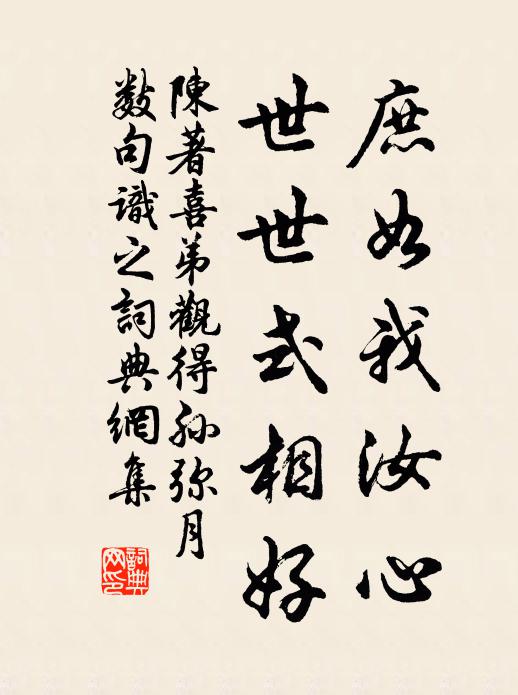 庶如我汝心
世世式相好
陳著喜弟觀得孙弥月
数句識之詞典網集
詞典网印